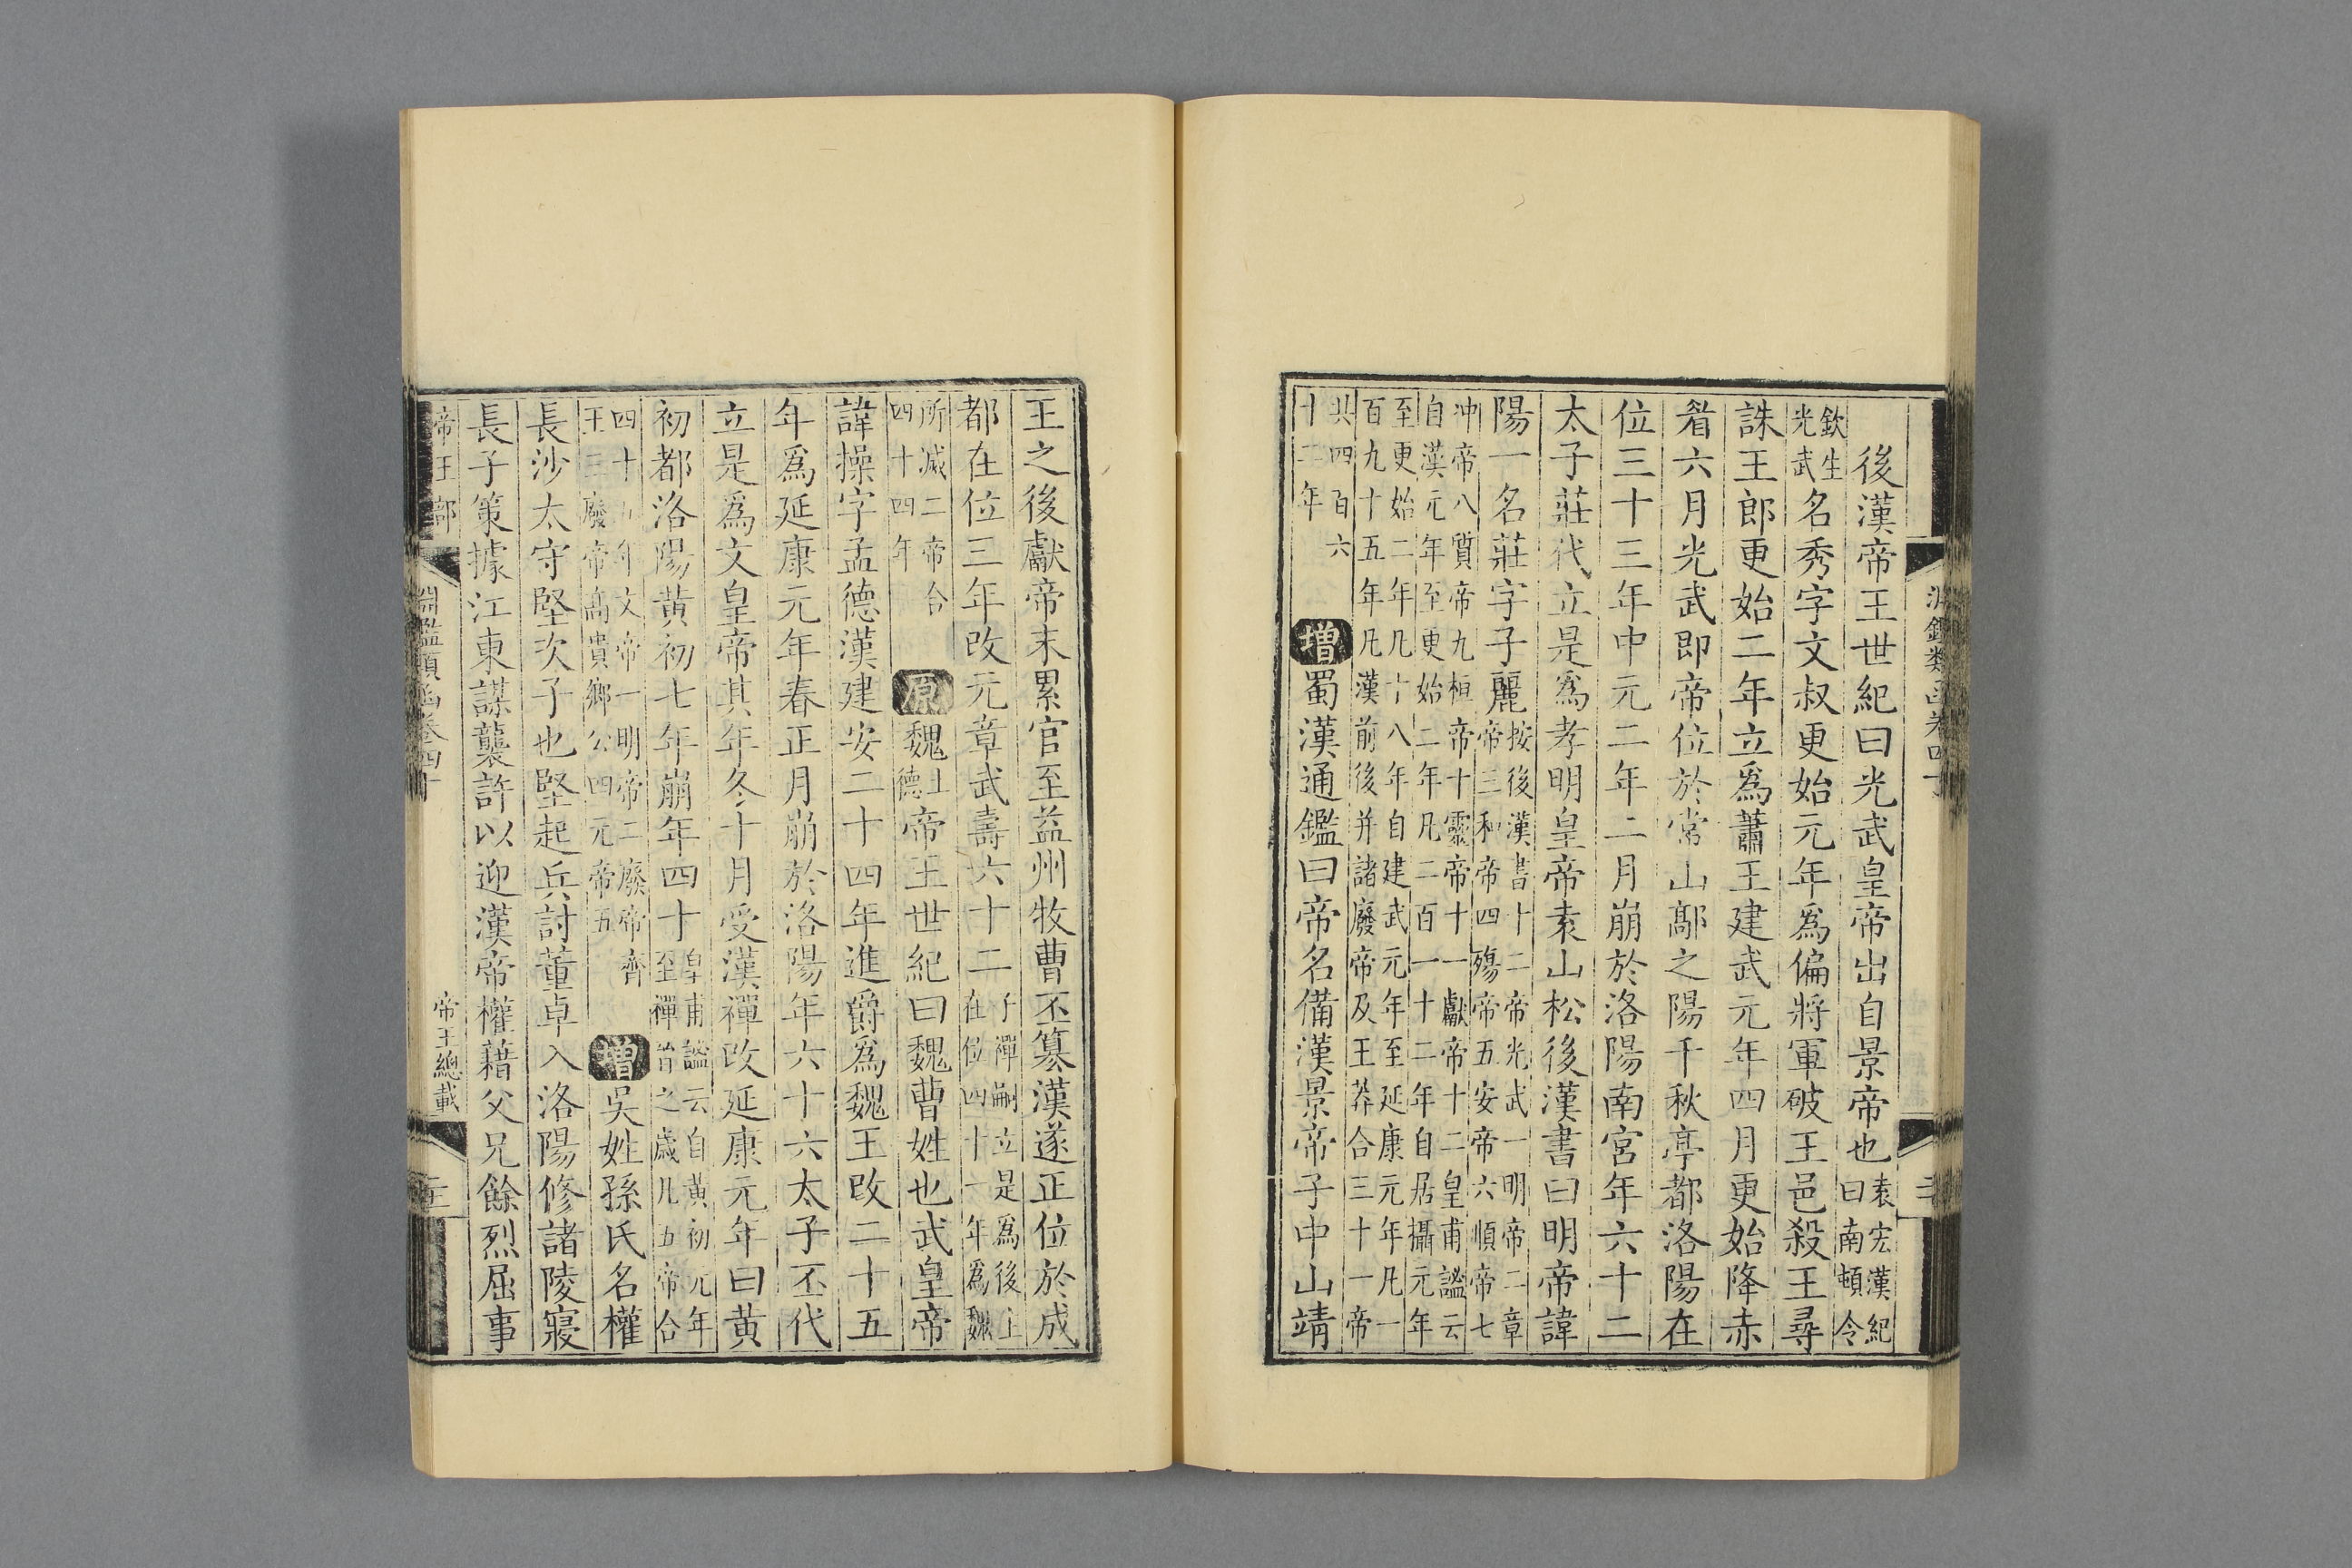 後漢帝王世紀曰光武皇帝出自景帝也袁宏漢紀曰南頓令
欽生光武名秀字文叔更始元年為偏將軍破王邑殺王尋
誅王郎更始二年立為蕭王建武元年四月更始降赤
眉六月光武即帝位於常山鄗之陽千秋亭都洛陽在
位三十三年中元二年二月崩於洛陽南宮年六十二
太子莊代立是為孝明皇帝袁山松後漢書曰明帝諱
陽一名莊字子麗按後漢書十二帝光武一明帝二章帝三和帝四殤帝五安帝六順帝七
冲帝八質帝九桓帝十靈帝十一獻帝十二皇甫謐云自漢元年至更始二年凡二百一十二年自居攝元年
至更始二年凡十八年自建武元年至延康元年凡一百九十五年凡漢前後并諸廢帝及王莽合三十一帝
共四百六十二年增蜀漢通鑑曰帝名備漢景帝子中山靖
王之後獻帝末累官至益州牧曹丕篡漢遂正位於成
都在位三年改元章武壽六十二子禪嗣立是為後主在位四十一年為魏
所滅二帝合四十四年原魏土德帝王世紀曰魏曹姓也武皇帝
諱操字孟德漢建安二十四年進爵為魏王改二十五
年為延康元年春正月崩於洛陽年六十六太子丕代
立是為文皇帝其年冬十月受漢禪改延康元年曰黃
初都洛陽黃初七年崩年四十皇甫謐云自黃初元年至禪晉之歲凡五帝合
四十五年文帝一明帝二廢帝齊王三廢帝高貴鄉公四元帝五增吳姓孫氏名權
長沙太守堅次子也堅起兵討董卓入洛陽修諸陵寢
長子策據江東謀襲許以迎漢帝權藉父兄餘烈屈事
帝王部 淵鑑類函卷四十 帝王總載